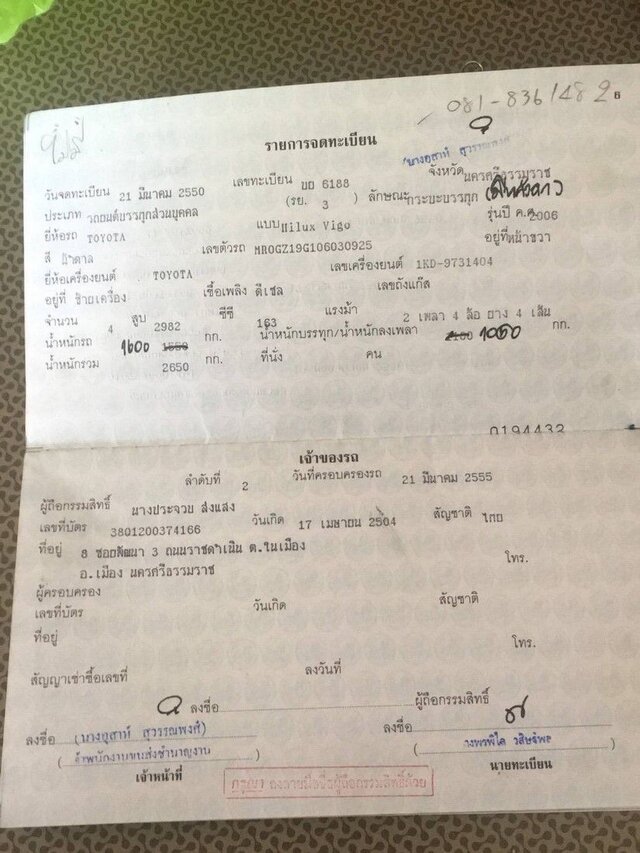 081-8361482
8
ไม่มี
รายการจดทะเบียน
(นางอุสาห์ สุวรรณพงศ์
วันจดทะเบียน 21 มีนาคม 2550 เลขทะเบียน บย 6188 จังหวัด นครศรีธรรมราช
ประเภท รถยนต์บรรทุกส่วนบุคคล (รย. 3 ) ลักษณะ กระบะบรรทุก
ยี่ห้อรถ TOYOTA แบบ Hilux Vigo รุ่นปี ค.ศ. 2006
สี เลขตัวรถ MROGZ19G106030925 อยู่ที่ หน้าขวา
ยี่ห้อเครื่องยนต์ TOYOTA เลขเครื่องยนต์ 1KD-9731404
อยู่ที่ ซ้ายเครื่อง เชื้อเพลิง ดีเซล เลขถังแก๊ส
จำนวน 4 สูบ 2982 ซีซี 163 แรงม้า 2 เพลา 4 ล้อ ยาง 4 เส้น
น้ำหนักรถ 1600 1550 กก. น้ำหนักบรรทุก/น้ำหนักลงเพลา 1050 กก.
น้ำหนักรวม 2650 กก. ที่นั่ง คน
0194433
เจ้าของรถ
ลำดับที่ 2 วันที่ครอบครองรถ 21 มีนาคม 2555
ผู้ถือกรรมสิทธิ์ นางประจวบ ส่งแสง
เลขที่บัตร 3801200374166 วันเกิด 17 เมษายน 2504 สัญชาติ ไทย
ที่อยู่ 8 ซอยพัฒนา 3 ถนนราชดำเนิน ต.ในเมือง โทร.
อ.เมือง นครศรีธรรมราช
ผู้ครอบครอง
เลขที่บัตร วันเกิด สัญชาติ
ที่อยู่ โทร.
สัญญาเช่าซื้อเลขที่ ลงวันที่
ลงชื่อ ผู้ถือกรรมสิทธิ์
ลงชื่อ (นางอุสาห์ สุวรรณพงศ์) ลงชื่อ
(เจ้าพนักงานขนส่งชำนาญงาน)
เจ้าหน้าที่ นายทะเบียน
กรุณา ลงลายมือชื่อผู้ถือกรรมสิทธิ์ด้วย